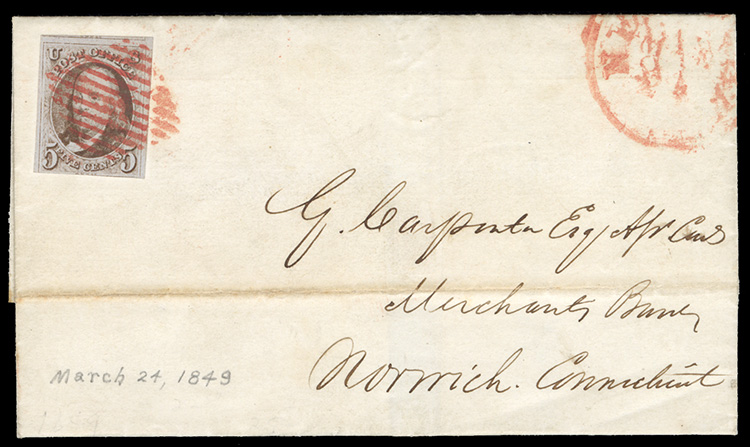 U S
POST OFFICE
5 FIVE CENTS 5
G. Carpenter Esq
Merchants Bank
Norwich. Connecticut
March 24, 1849